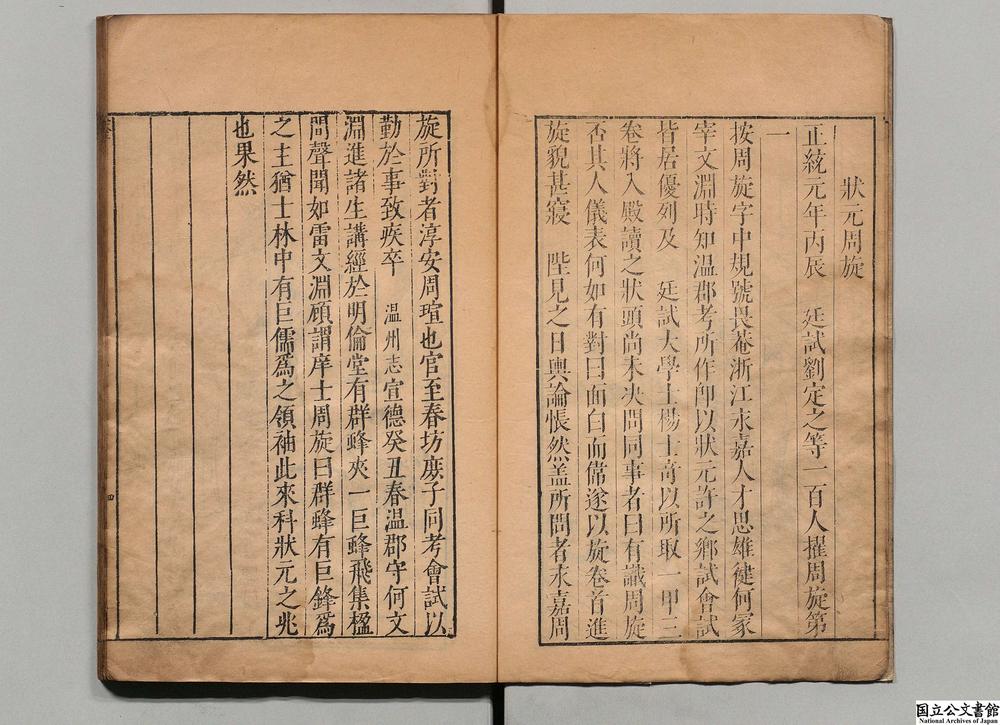 狀元周旋
正統元年丙辰　廷試劉定之等一百人擢周旋第
一
按周旋字中規號畏菴浙江永嘉人才思雄徤何冢
宰文淵時知温郡考所作卽以狀元許之鄉試會試
皆居優列及　廷試大學士楊士奇以所取一甲三
卷將入殿讀之狀頭尚未决問同事者曰有識周旋
否其人儀表何如有對曰面白而偉遂以旋卷首進
旋貌甚寢　陛見之日輿論悵然盖所問者永嘉周
旋所對者淳安周瑄也官至春坊庶子同考會試以
勤於事致疾卒　温州志宣德癸丑春温郡守何文
淵進諸生講經於明倫堂有群蜂夾一巨蜂飛集楹
間聲聞如雷文淵顧謂庠士周旋曰群蜂有巨鋒爲
之主猶士林中有巨儒爲之領袖此來科狀元之兆
也果然
四
国立公文書館
National Archives of Japan